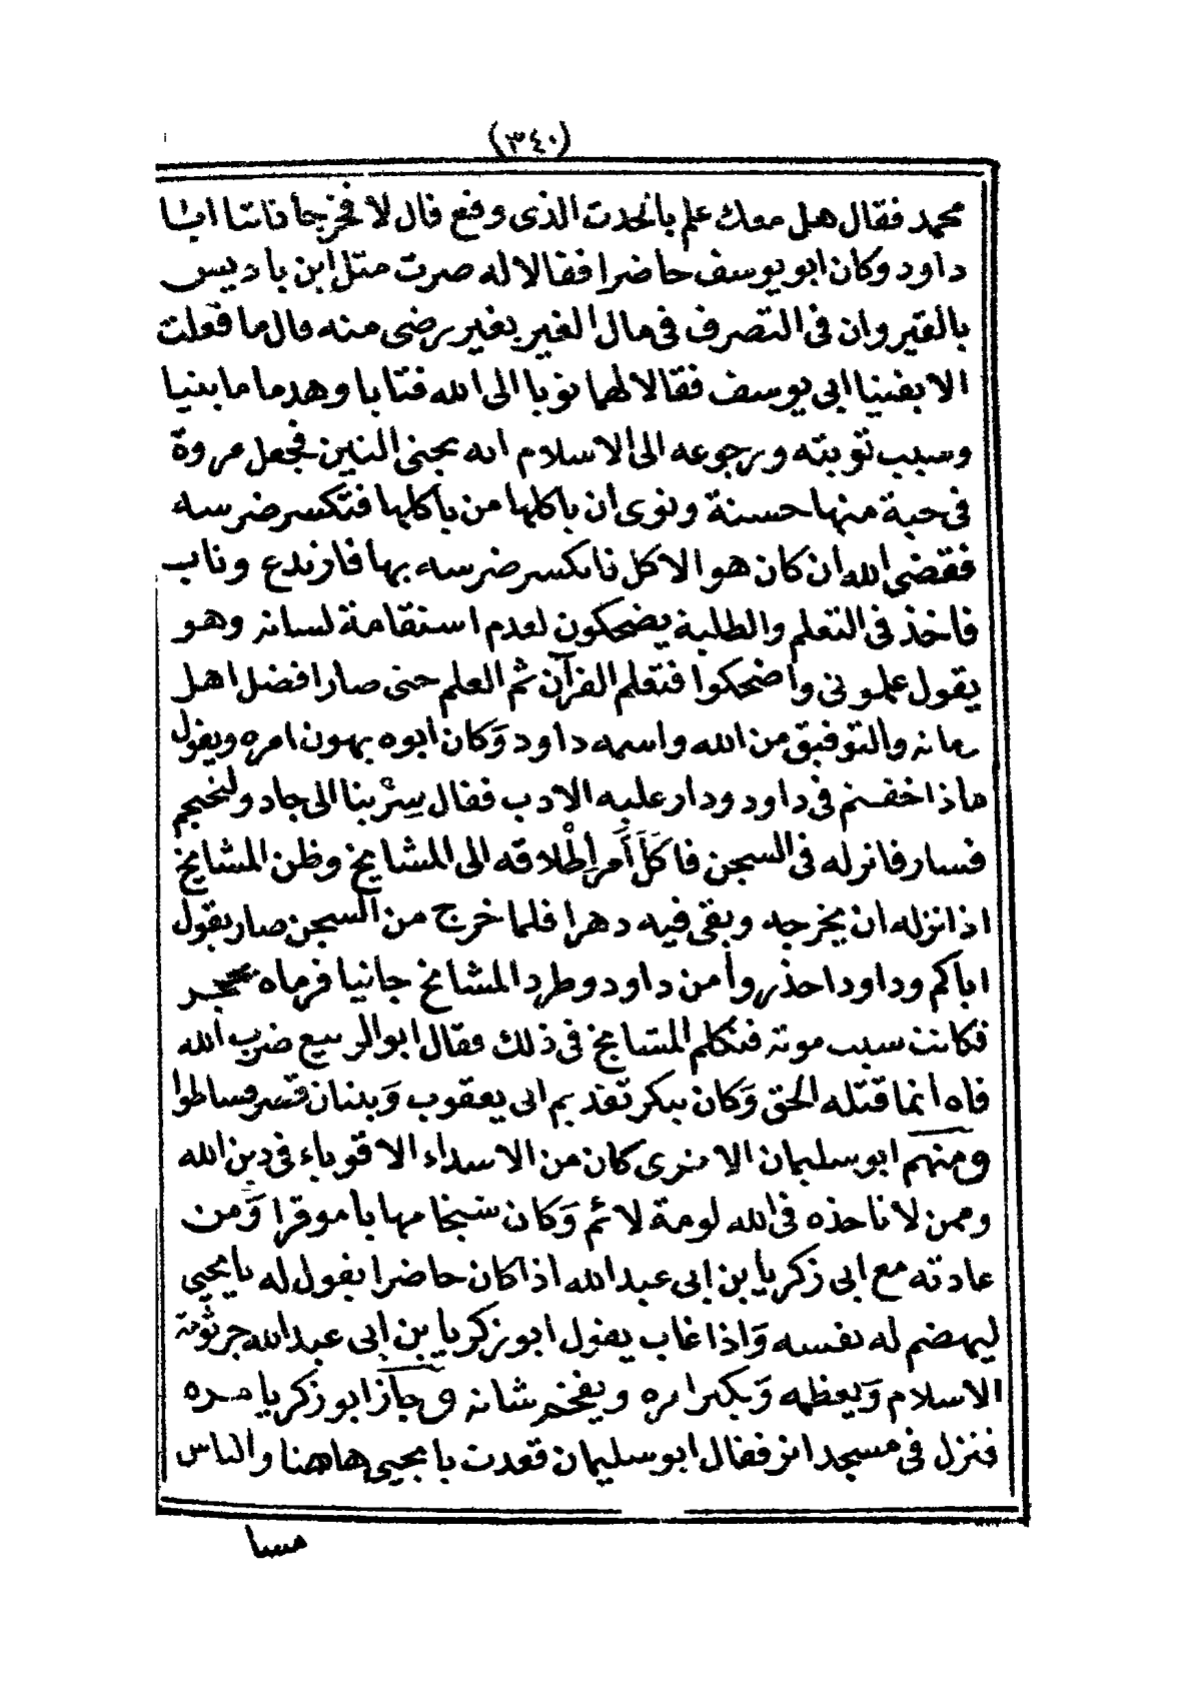 (٣٤٠)
محمد فقال هل معك علم بالحدث الذى وقع قال لا فخرجا فاتيا ابا
داود وكان ابو يوسف حاضرا فقالا له صرت مثل ابن باديس
بالقيروان فى التصرف فى مال الغير بغير رضى منه قال ما فعلت
الا بفتيا ابى يوسف فقالا لهما توبا الى الله فتابا وهدما ما بنيا
وسبب توبته ورجوعه الى الاسلام انه يجنى التين فجعل مروة
فى حبة منها حسنة ونوى ان ياكلها من ياكلها فتكسر ضرسه
فقضى الله ان كان هو الاكل فانكسر ضرسه بها فارتدع وتاب
فاخذ فى التعلم والطلبة يضحكون لعدم استقامة لسانه وهو
يقول علمونى واضحكوا فتعلم القرآن ثم العلم حتى صار افضل اهل
زمانه والتوفيق من الله واسمه داود وكان ابوه يهون امره ويقول
ماذا خفتم فى داود ودار عليه الادب فقال سِرْ بنا الى جادو
فسار فانزله فى السجن فاكَلَ أمر إطْلاقه الى المشايخ وظن المشايخ
اذ انزله ان يخرجه وبقى فيه دهرا فلما خرج من السجن صار يقول
اياكم وداود احذروا من داود وطرد المشايخ جانيا فرماه بحجر
فكانت سبب موته فتكلم المشايخ فى ذلك فقال ابو الربيع ضرب الله
فاه انما قتله الحق وكان يبكر تقديم ابى يعقوب
ومنهم ابو سليمان كان من الاسداء الاقوياء فى دين الله
وممن لا تاخذه فى الله لومة لائم وكان شيخا مهابا موقرا ومن
عادته مع ابى زكريا بن ابى عبد الله اذا كان حاضرا يقول له يا يحيى
ليهضم له نفسه واذا غاب يقول ابو زكريا بن ابى عبد الله جرثومة
الاسلام ويعظمه ويكبر امره ويفخم شانه وجاز ابو زكريا مرة
فنزل فى مسجد فقال ابو سليمان قعدت يا يحيى هاهنا والناس
مسا